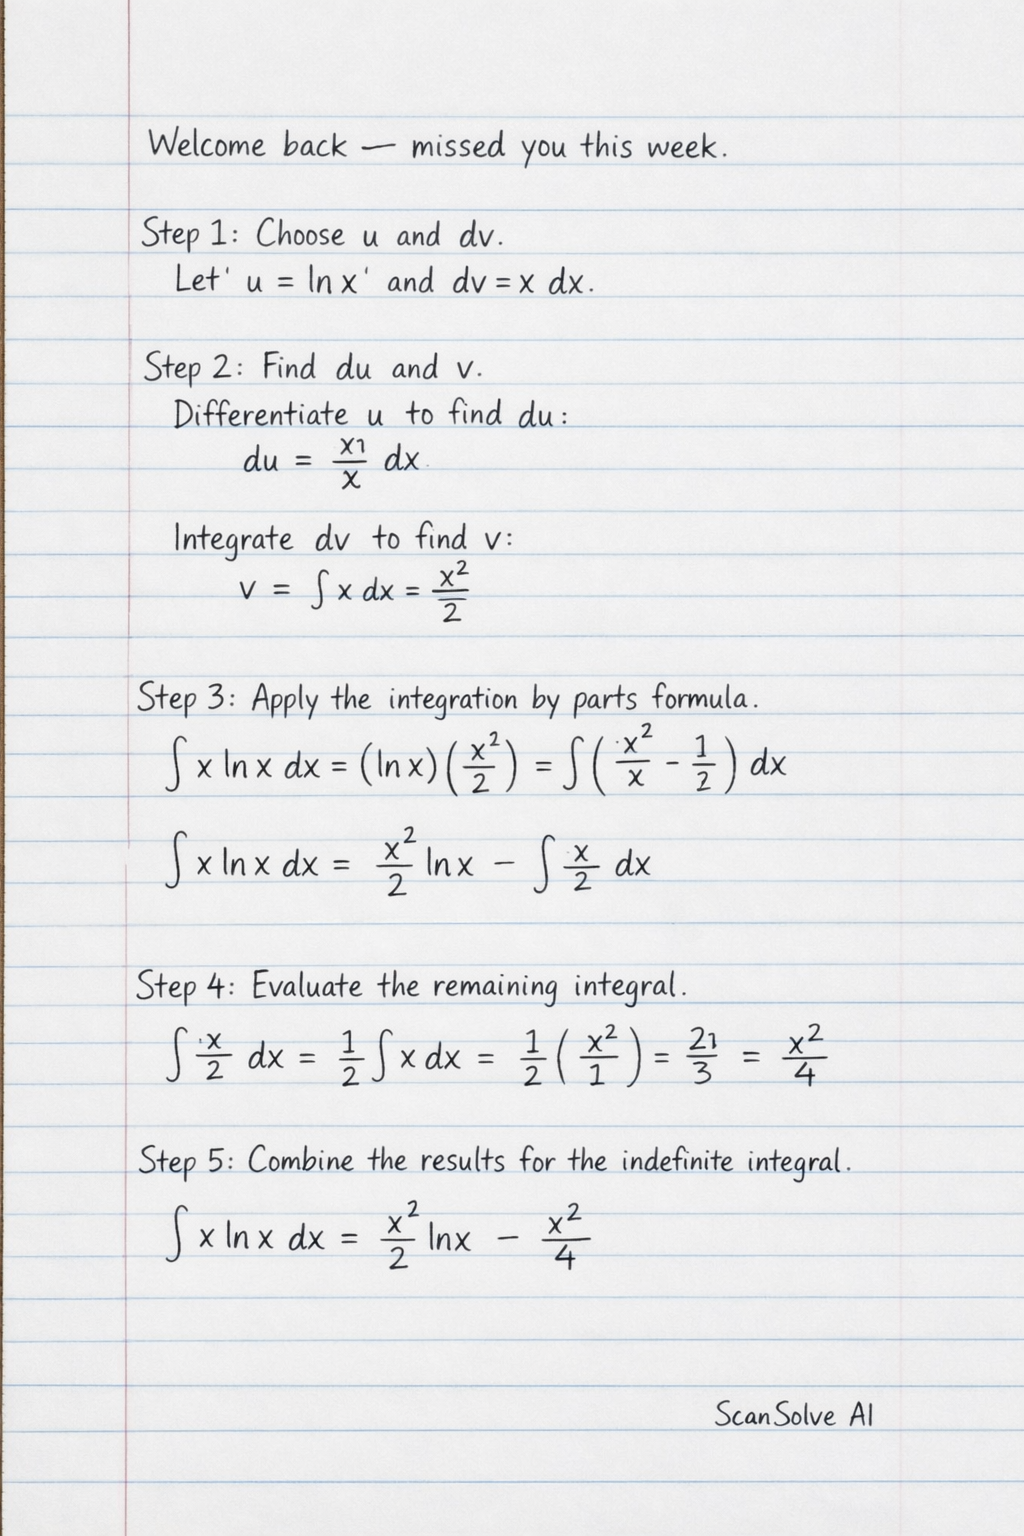 Welcome back — missed you this week.
Step 1: Choose u and dv.
Let' u = ln x' and dv = x dx.
Step 2: Find du and v.
Differentiate u to find du:
du = x1/x dx.
Integrate dv to find v:
v = ∫ x dx = x²/2
Step 3: Apply the integration by parts formula.
∫ x ln x dx = (ln x)(x²/2) = ∫(x²/x - 1/2) dx
∫ x ln x dx = x²/2 ln x − ∫ x/2 dx
Step 4: Evaluate the remaining integral.
∫ x/2 dx = 1/2 ∫ x dx = 1/2 (x²/1) = 21/3 = x²/4
Step 5: Combine the results for the indefinite integral.
∫ x ln x dx = x²/2 ln x − x²/4
ScanSolve AI